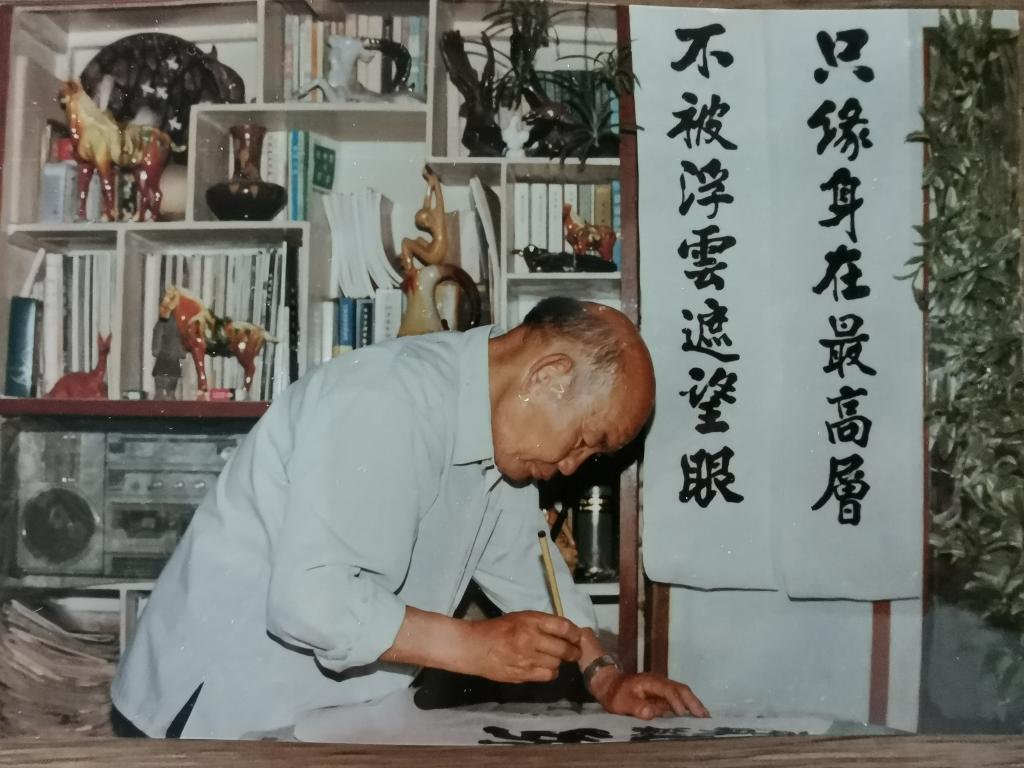 不被浮雲遮望眼
只緣身在最高層